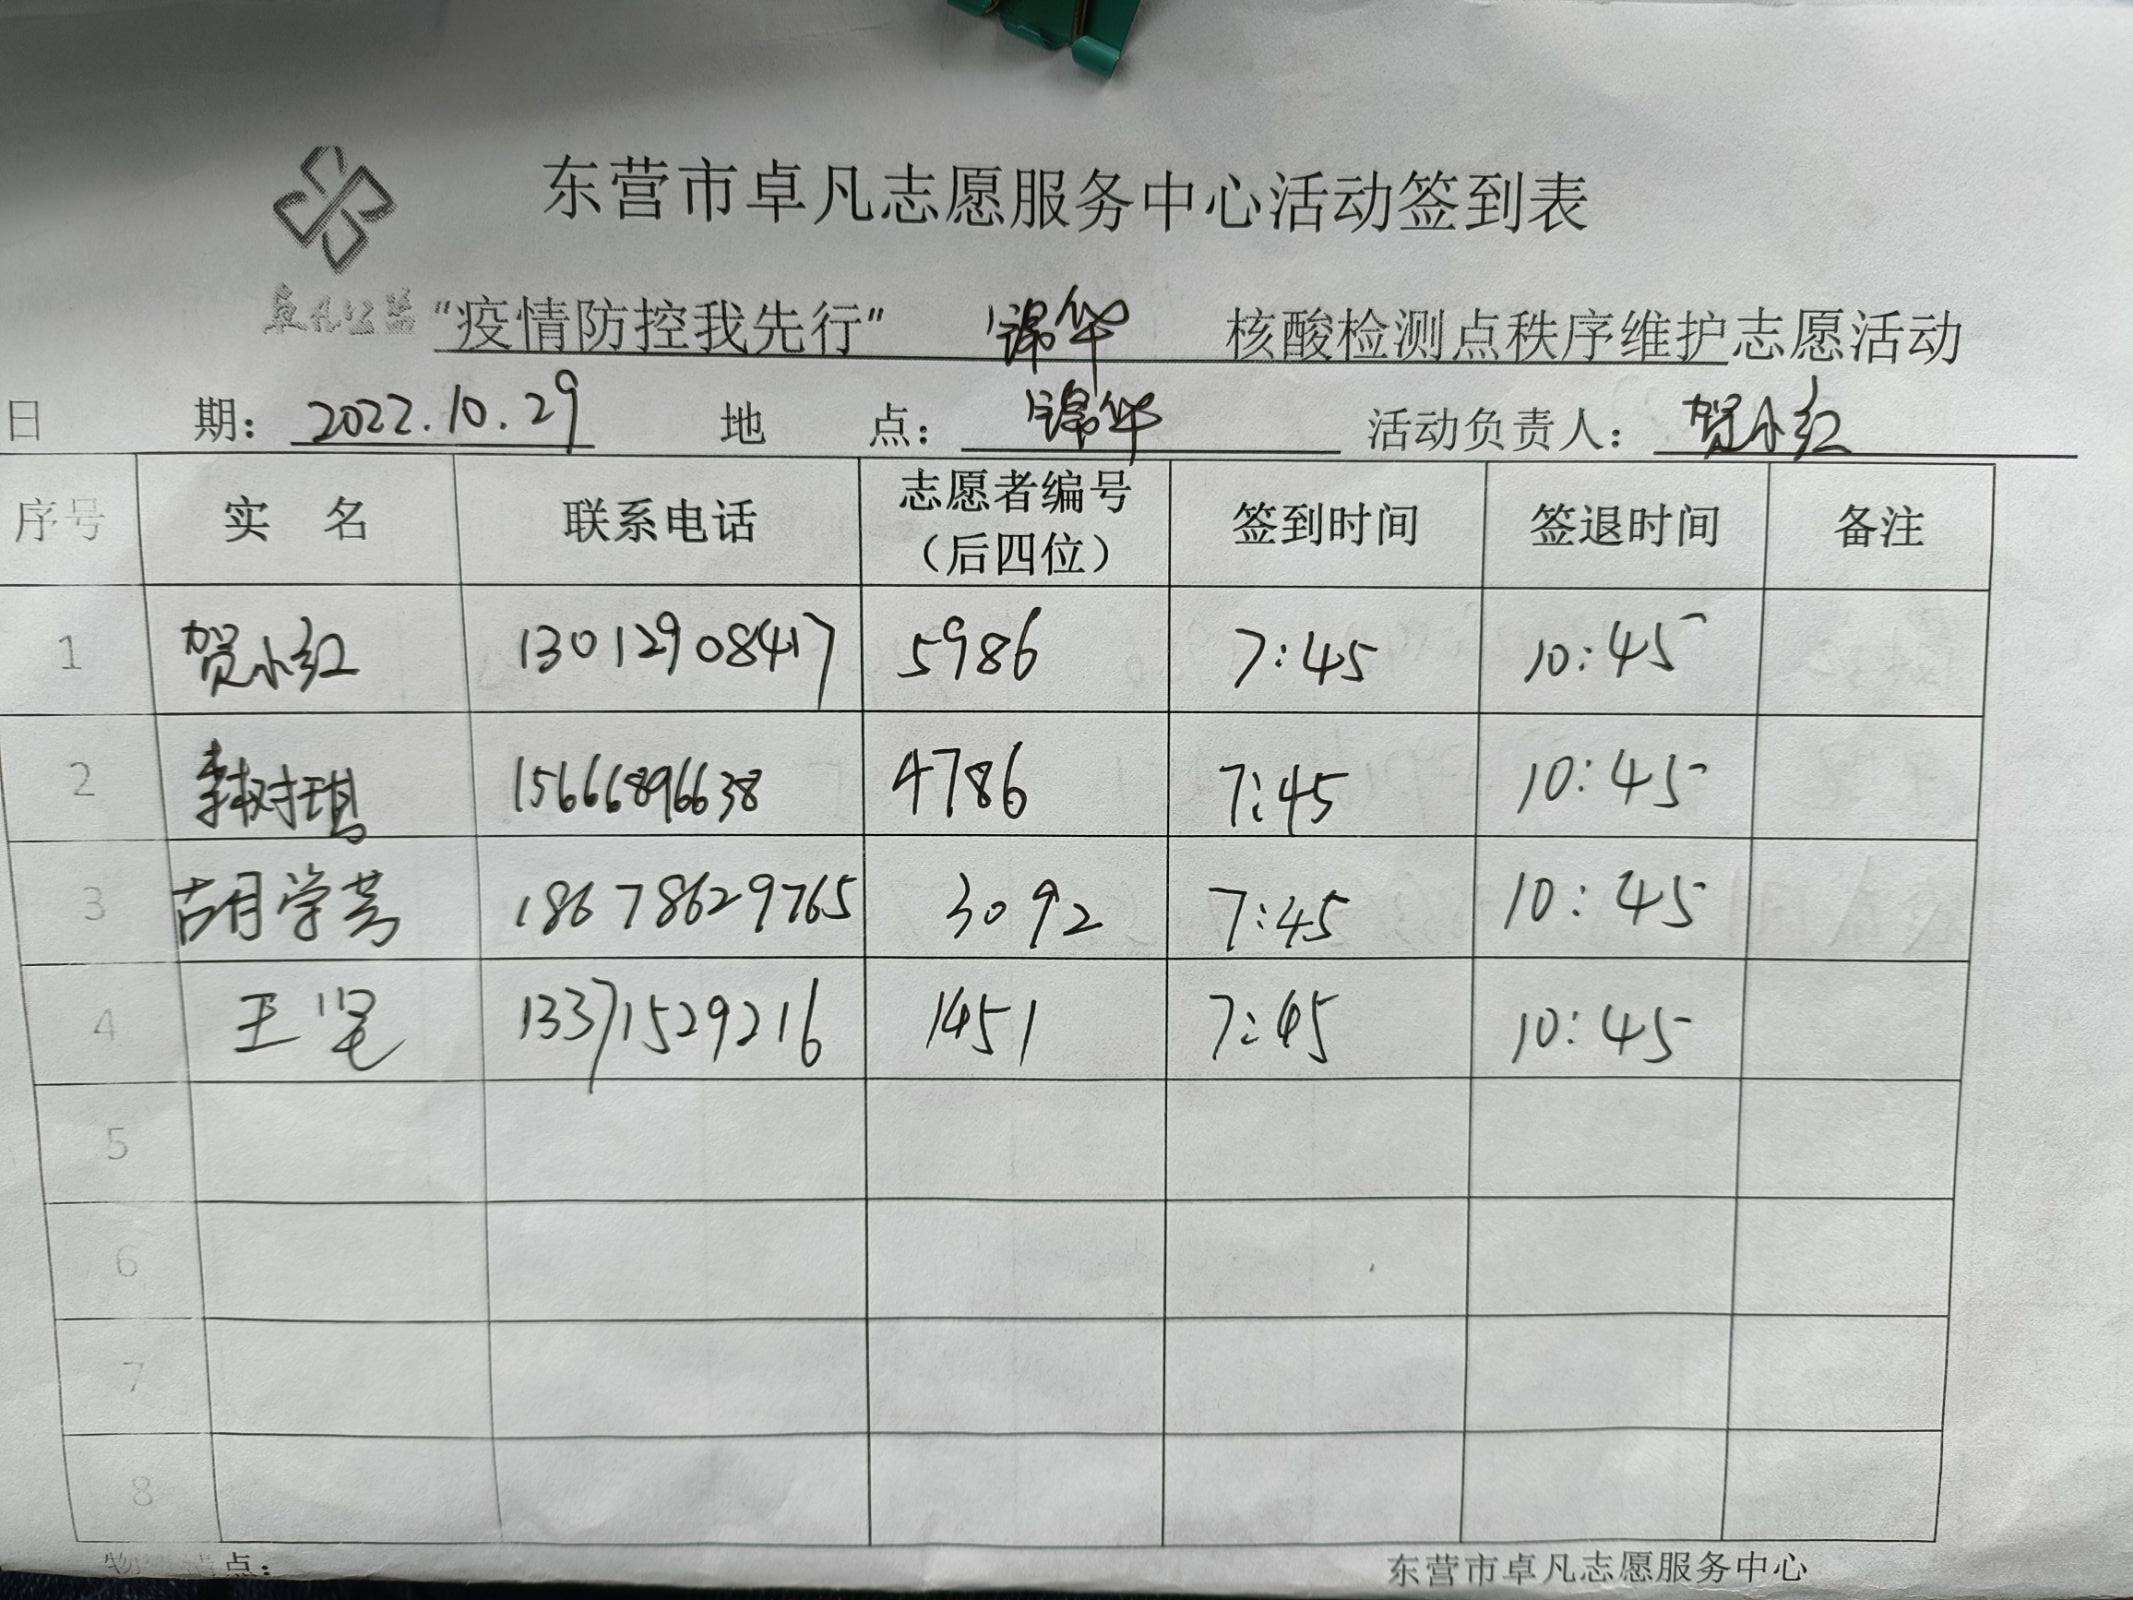 东营市卓凡志愿服务中心活动签到表
卓凡公益
“疫情防控我先行” 锦华 核酸检测点秩序维护志愿活动
日 期: 2022.10.29 地 点: 锦华 活动负责人: 贺小红
序号 实 名 联系电话 志愿者编号(后四位) 签到时间 签退时间 备注
1 贺小红 13012908417 5986 7:45 10:45
2 李树琪 15666896638 4786 7:45 10:45
3 胡学芳 18678629765 3092 7:45 10:45
4 王 13371529216 1451 7:45 10:45
5
6
7
8
物 点:
东营市卓凡志愿服务中心